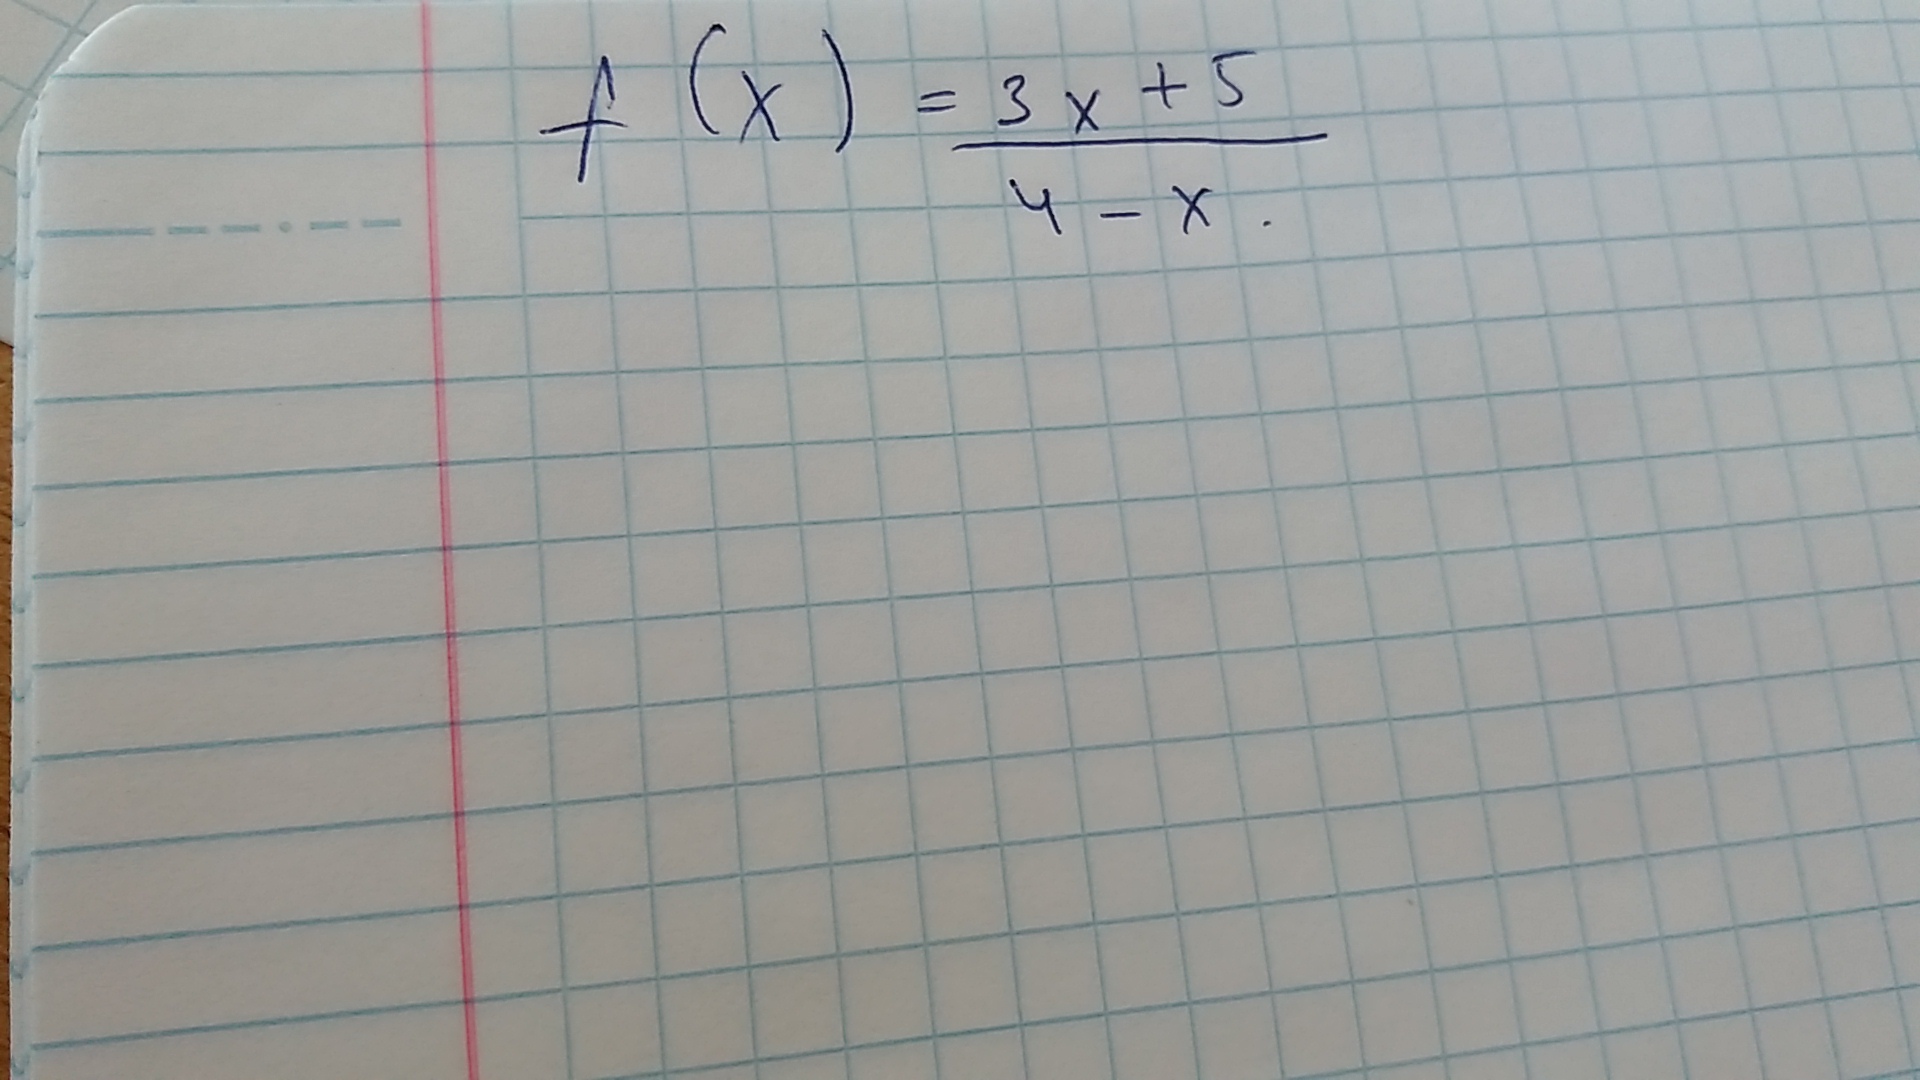 f(x) = 3x+5
4-x.